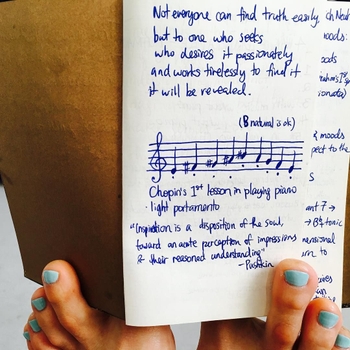 Not everyone can find truth easily,
but to one who seeks
who desires it passionately
and works tirelessly to find it
it will be revealed.
(B natural is ok)
Chopin's 1st lesson in playing piano
- light portamento
"Inspiration is a disposition of the soul,
toward an acute perception of impressions
& their reasoned understanding"
- Pushkin
moods
S